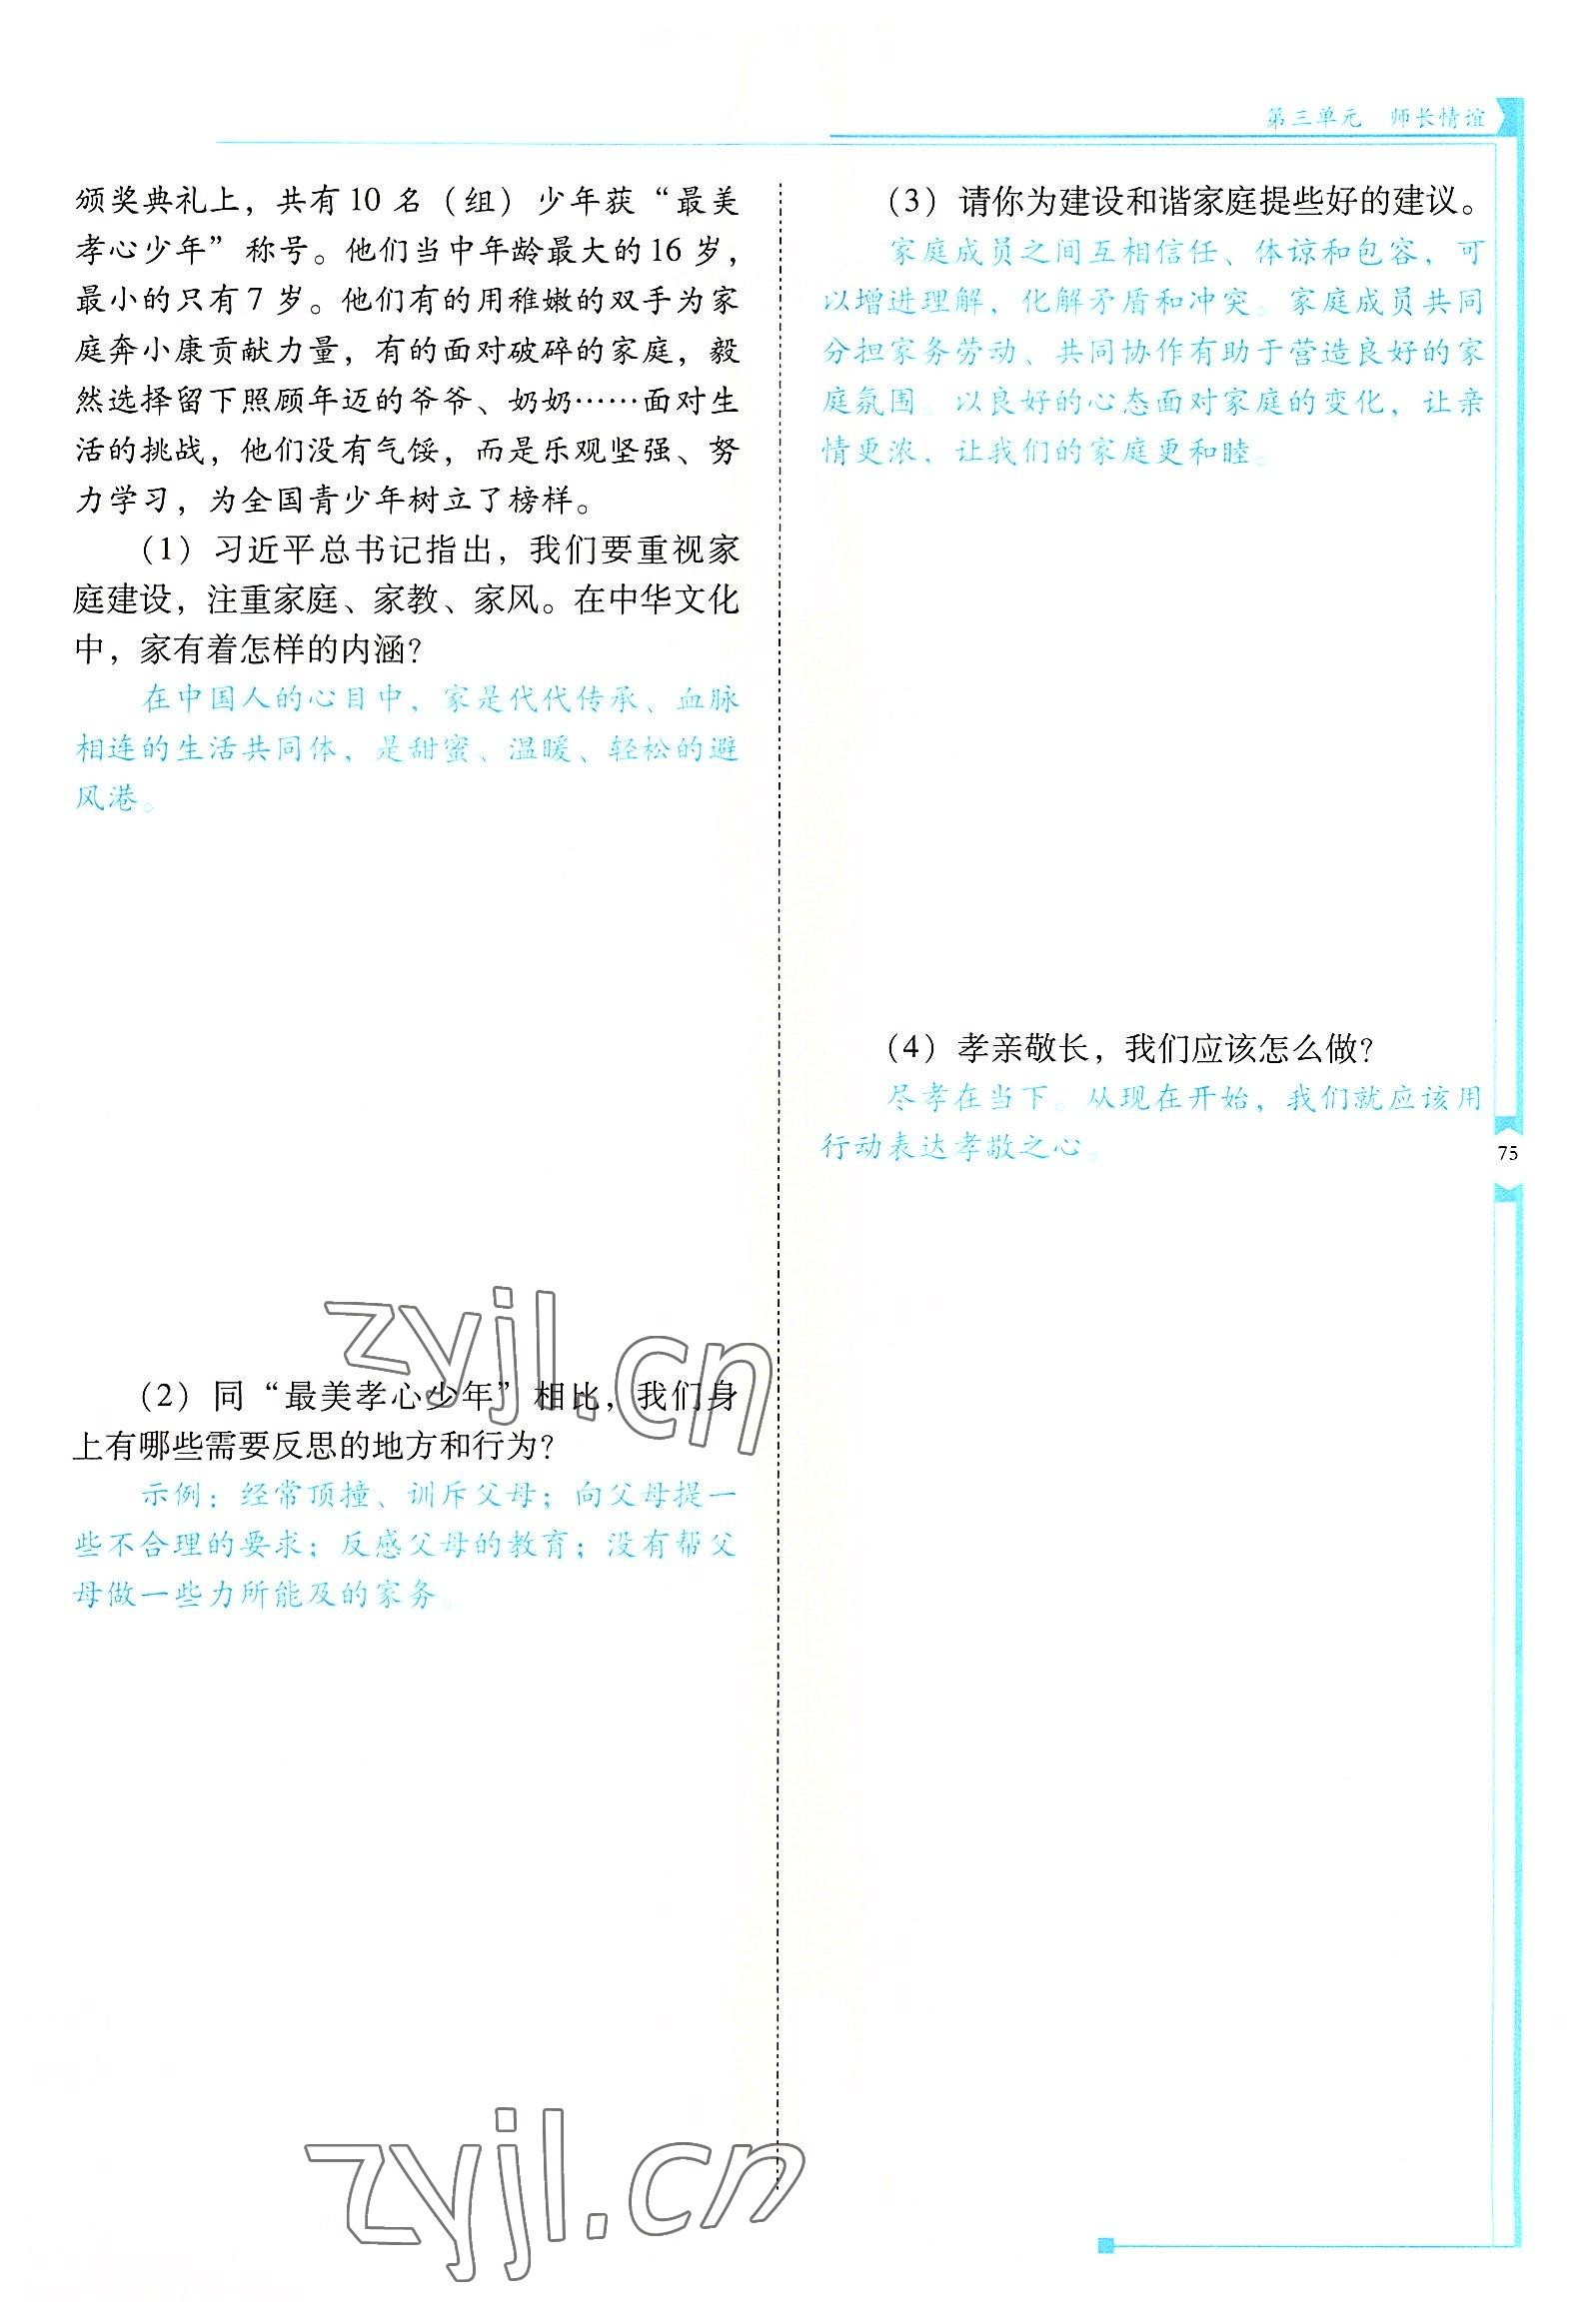 第三单元　师长情谊
颁奖典礼上，共有10名（组）少年获“最美
孝心少年”称号。他们当中年龄最大的16岁，
最小的只有7岁。他们有的用稚嫩的双手为家
庭奔小康贡献力量，有的面对破碎的家庭，毅
然选择留下照顾年迈的爷爷、奶奶……面对生
活的挑战，他们没有气馁，而是乐观坚强、努
力学习，为全国青少年树立了榜样。
（1）习近平总书记指出，我们要重视家
庭建设，注重家庭、家教、家风。在中华文化
中，家有着怎样的内涵？
在中国人的心目中，家是代代传承、血脉
相连的生活共同体，是甜蜜、温暖、轻松的避
风港。
（2）同“最美孝心少年”相比，我们身
上有哪些需要反思的地方和行为？
示例：经常顶撞、训斥父母；向父母提一
些不合理的要求；反感父母的教育；没有帮父
母做一些力所能及的家务。
（3）请你为建设和谐家庭提些好的建议。
家庭成员之间互相信任、体谅和包容，可
以增进理解，化解矛盾和冲突。家庭成员共同
分担家务劳动、共同协作有助于营造良好的家
庭氛围。以良好的心态面对家庭的变化，让亲
情更浓，让我们的家庭更和睦。
（4）孝亲敬长，我们应该怎么做？
尽孝在当下。从现在开始，我们就应该用
行动表达孝敬之心。
75
zyjl.cn
zyjl.cn